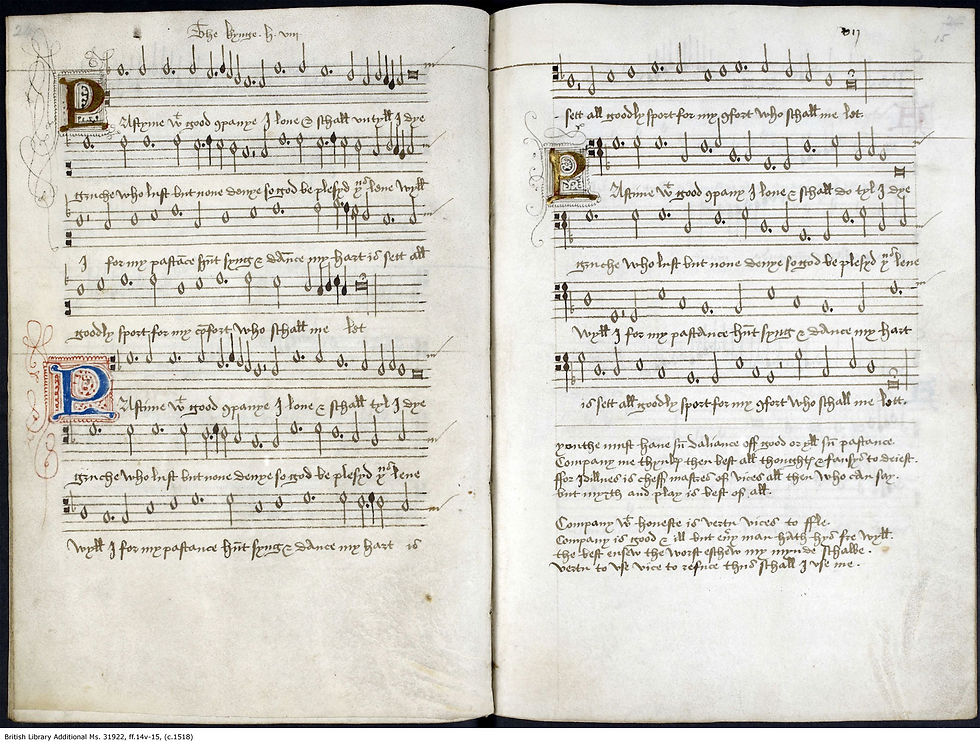 The kynge . h . viij
PAstyme wt good 9panye I love & schall untyll I dye
gruche who lust but none denye so god be plesyd yus leve wyll
I for my pastāce hūt syng & dāce my hart is sett all
goodly sport for my cōfort who schall me let
PAstime wt good 9panye I love & schall tyl I dye
gruche who lust but none denye so god be plesyd yus leve
wyll I for my pastance hūt syng & dance my hart is
15
sett all goodly sport for my 9fort who schall me let.
PAstime wt good 9pany I love & schall do tyl I dye
gruche who lust but none denye so god be plesyd yus leve
wyll I for my pastance hūt syng & dance my hart
is sett all goodly sport for my 9fort who schall me lett.
youthe must have sū daliance off good or yll sū pastance.
Company me thynks then best all thoughts & fansys to deiest.
ffor Idillnes is cheff mastres of vices all then who can say.
but myrth and play is best of all.
Company wt honeste is vertu vices to ffle.
Company is good & ill but evy man hath hys fre wyll.
the best ensew the worst eschew my mynde schalbe.
vertu to use vice to refuce thus schall I use me.
British Library Additional Ms. 31922, ff.14v-15, (c.1518)